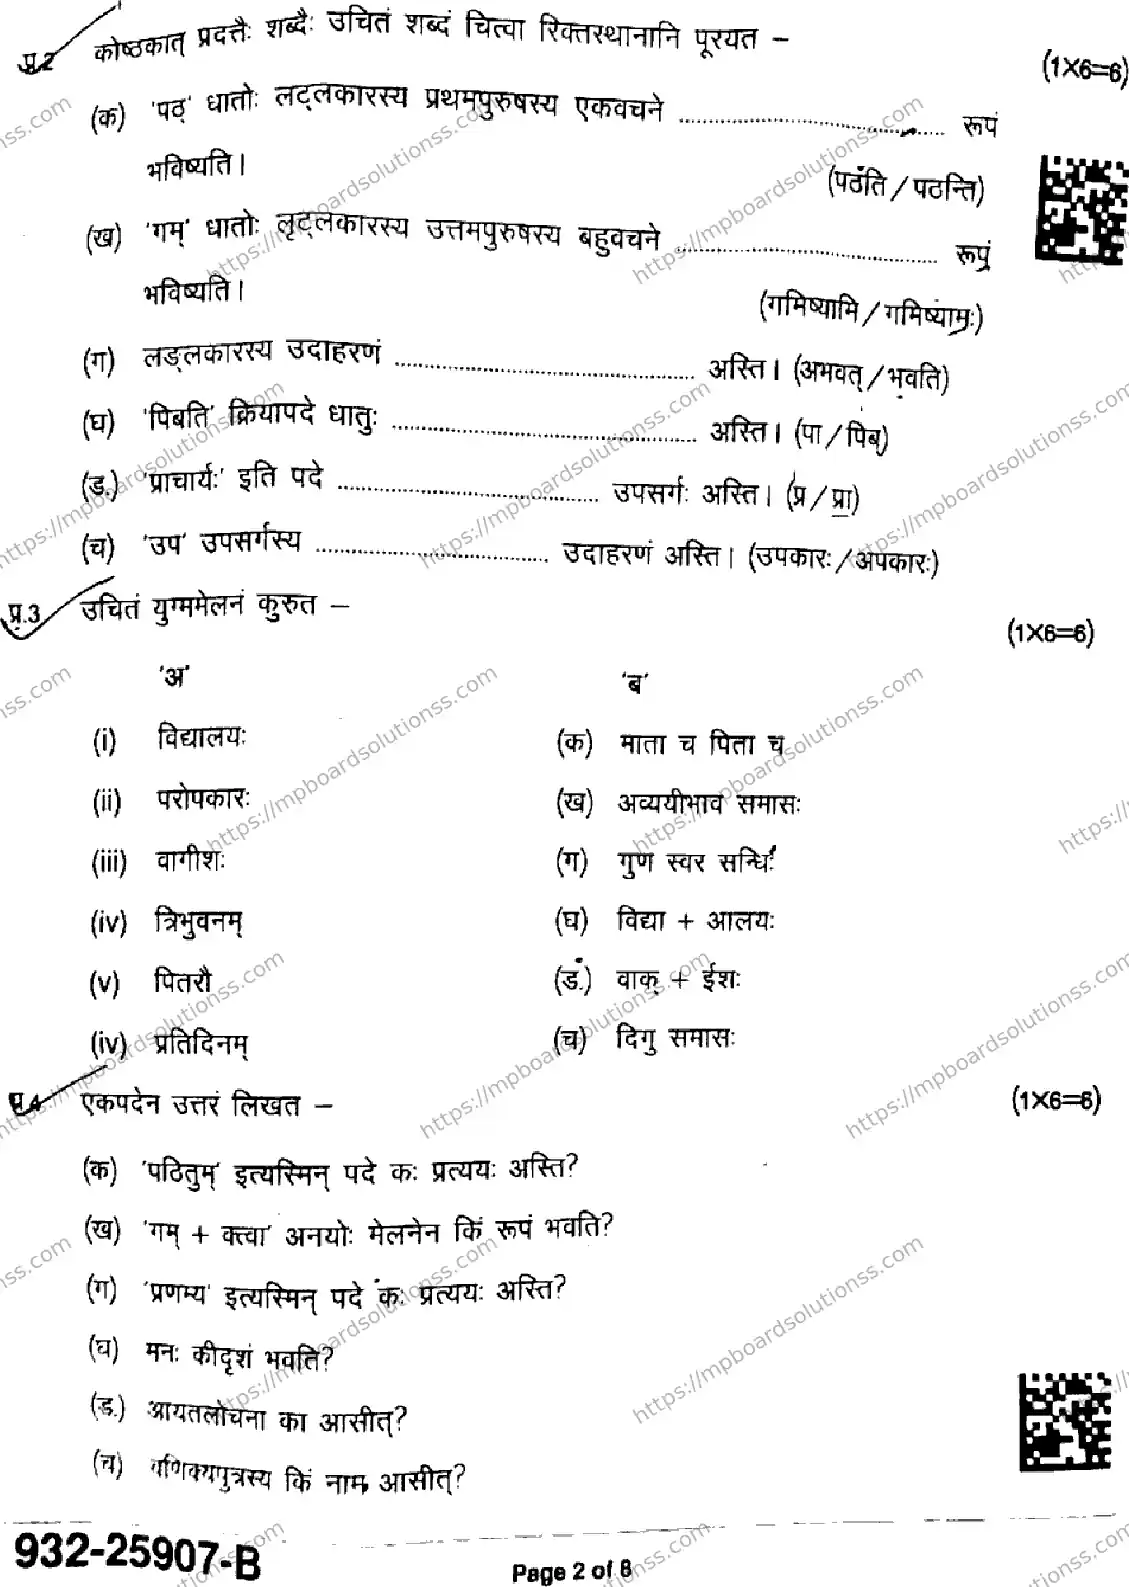 प्र.2 कोष्ठकात् प्रदत्तैः शब्दैः उचितं शब्दं चित्वा रिक्तस्थानानि पूरयत – (1×6=6)
(क) 'पठ्' धातोः लट्लकारस्य प्रथमपुरुषस्य एकवचने .......................................... रूपं
भविष्यति।
(पठति / पठन्ति)
(ख) 'गम्' धातोः लृट्लकारस्य उत्तमपुरुषस्य बहुवचने .......................................... रूपं
भविष्यति।
(गमिष्यामि / गमिष्यामः)
(ग) लङ्लकारस्य उदाहरणं .......................................... अस्ति। (अभवत् / भवति)
(घ) 'पिबति' क्रियापदे धातुः .......................................... अस्ति। (पा / पिब्)
(ड.) 'प्राचार्यः' इति पदे .......................................... उपसर्गः अस्ति। (प्र / प्रा)
(च) 'उप' उपसर्गस्य .......................................... उदाहरणं अस्ति। (उपकारः / अपकारः)
प्र.3 उचितं युग्ममेलनं कुरुत – (1×6=6)
'अ' 'ब'
(i) विद्यालयः (क) माता च पिता च
(ii) परोपकारः (ख) अव्ययीभाव समासः
(iii) वागीशः (ग) गुण स्वर सन्धिः
(iv) त्रिभुवनम् (घ) विद्या + आलयः
(v) पितरौ (ड.) वाक् + ईशः
(iv) प्रतिदिनम् (च) दिगु समासः
प्र.4 एकपदेन उत्तरं लिखत – (1×6=6)
(क) 'पठितुम्' इत्यस्मिन् पदे कः प्रत्ययः अस्ति?
(ख) 'गम् + क्त्वा' अनयोः मेलनेन किं रूपं भवति?
(ग) 'प्रणम्य' इत्यस्मिन् पदे कः प्रत्ययः अस्ति?
(घ) मनः कीदृशं भवति?
(ड.) आयतलोचना का आसीत्?
(च) वणिक्पुत्रस्य किं नाम आसीत्?
932-25907-B Page 2 of 8
https://mpboardsolutionss.com